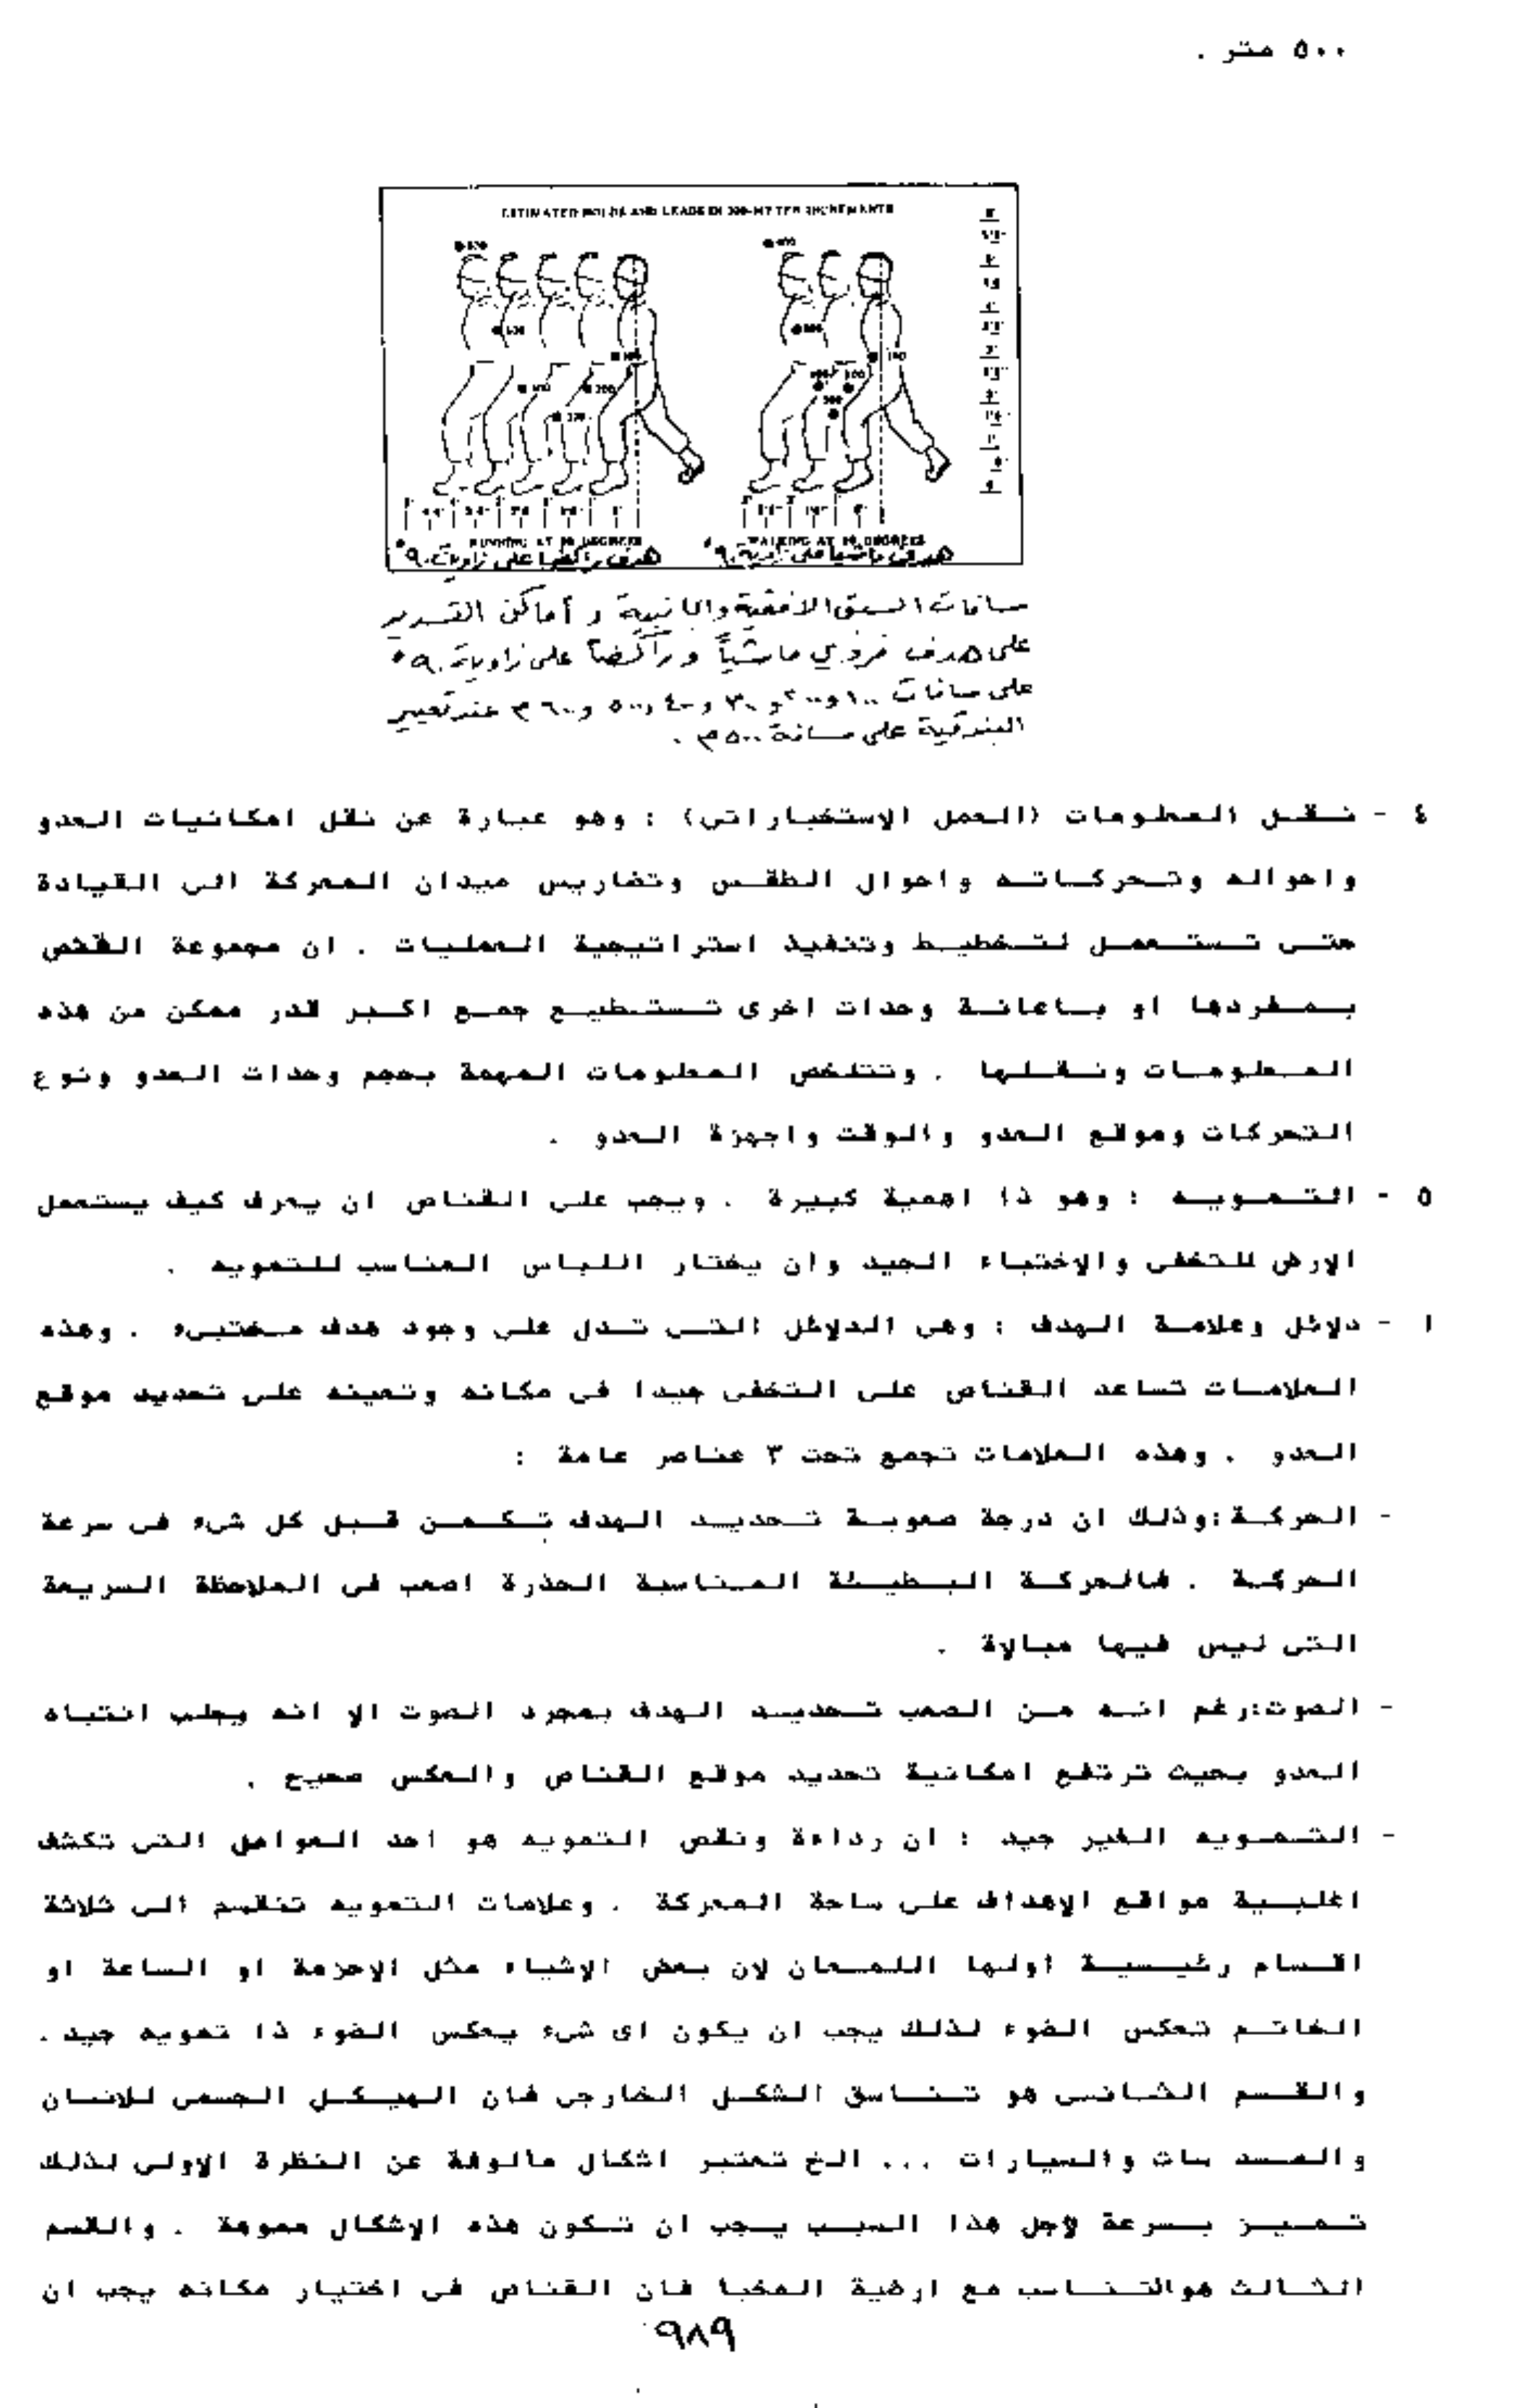 ٥٠٠ متر .
ESTIMATED HOLDS AND LEADS IN 100-METER INCREMENTS
RUNNING AT 90 DEGREES
WALKING AT 90 DEGREES
هدف راكضا على زاوية ٩٠°
هدف ماشيا على زاوية ٩٠°
مسافات السبق الافقية والجانبية و أماكن التسديد
على هدف فردي ماشياً و راكضاً على زاوية ٩٠°
على مسافات ١٠٠ و ٢٠٠ و ٣٠٠ و ٤٠٠ و ٥٠٠ و ٦٠٠ م عند تعيير
البندقية على مسافة ٥٠٠ م .
٤ - نـقـل المعلومات (العمل الإستخباراتى) : وهو عبارة عن نقل امكانيات العدو
واحواله وتـحركـاتـه واحوال الطقـس وتضاريس ميدان المعركة الى القيادة
حتـى تـستـعمـل لتـخطيـط وتنفيذ استراتيجية العمليات . ان مجموعة القنص
بـمـفردها او بـاعانـة وحدات اخرى تـستـطيـع جمـع اكـبر قدر ممكن من هذه
المـعلومـات ونـقـلـها . وتتلخص المعلومات المهمة بحجم وحدات العدو ونوع
التحركات وموقع العدو والوقت واجهزة العدو .
٥ - التـمـويـه : وهو ذا اهمية كبيرة . ويجب على القناص ان يعرف كيف يستعمل
الارض للتخفى والإختباء الجيد وان يختار اللباس المناسب للتمويه .
ا - دلائل وعلامـة الهدف : وهى الدلائل التـى تـدل على وجود هدف مـختبىء . وهذه
العلامـات تساعد القناص على التخفى جيدا فى مكانه وتعينه على تحديد موقع
العدو . وهذه العلامات تجمع تحت ٣ عناصر عامة :
- الحركـة :وذلك ان درجة صعوبـة تـحديـد الهدف تـكـمـن قـبل كل شىء فى سرعة
الحركـة . فالحركـة البـطيـئة المـناسبة الحذرة اصعب فى الملاحظة السريعة
التى ليس فيها مبالاة .
- الصوت:رغم انـه مـن الصعب تـحديـد الهدف بمجرد الصوت الا انه يجلب انتباه
العدو بحيث ترتفع امكانية تحديد موقع القناص والعكس صحيح .
- التـمـويه الغير جيد : ان رداءة ونقص التمويه هو احد العوامل التى تكشف
اغلبـية مواقع الاهداف على ساحة المعركة . وعلامات التمويه تنقسم الى ثلاثة
اقـسام رئيـسيـة اولها اللمـعان لان بعض الاشياء مثل الاحزمة او الساعة او
الخاتـم تعكس الضوء لذلك يجب ان يكون اى شىء يعكس الضوء ذا تمويه جيد .
والقـسم الثـانـى هو تـنـاسق الشكـل الخارجى فان الهيـكـل الجسمى للانسان
والمـسد سات والسيارات ... الخ تعتبر اشكال مالوفة عن النظرة الاولى لذلك
تـمـيـز بـسرعة لاجل هذا السبـب يـجب ان تـكون هذه الاشكال مموهة . والقسم
الثـالث هوالتـنـاسب مع ارضية المخبا فان القناص فى اختيار مكانه يجب ان
٩٨٩